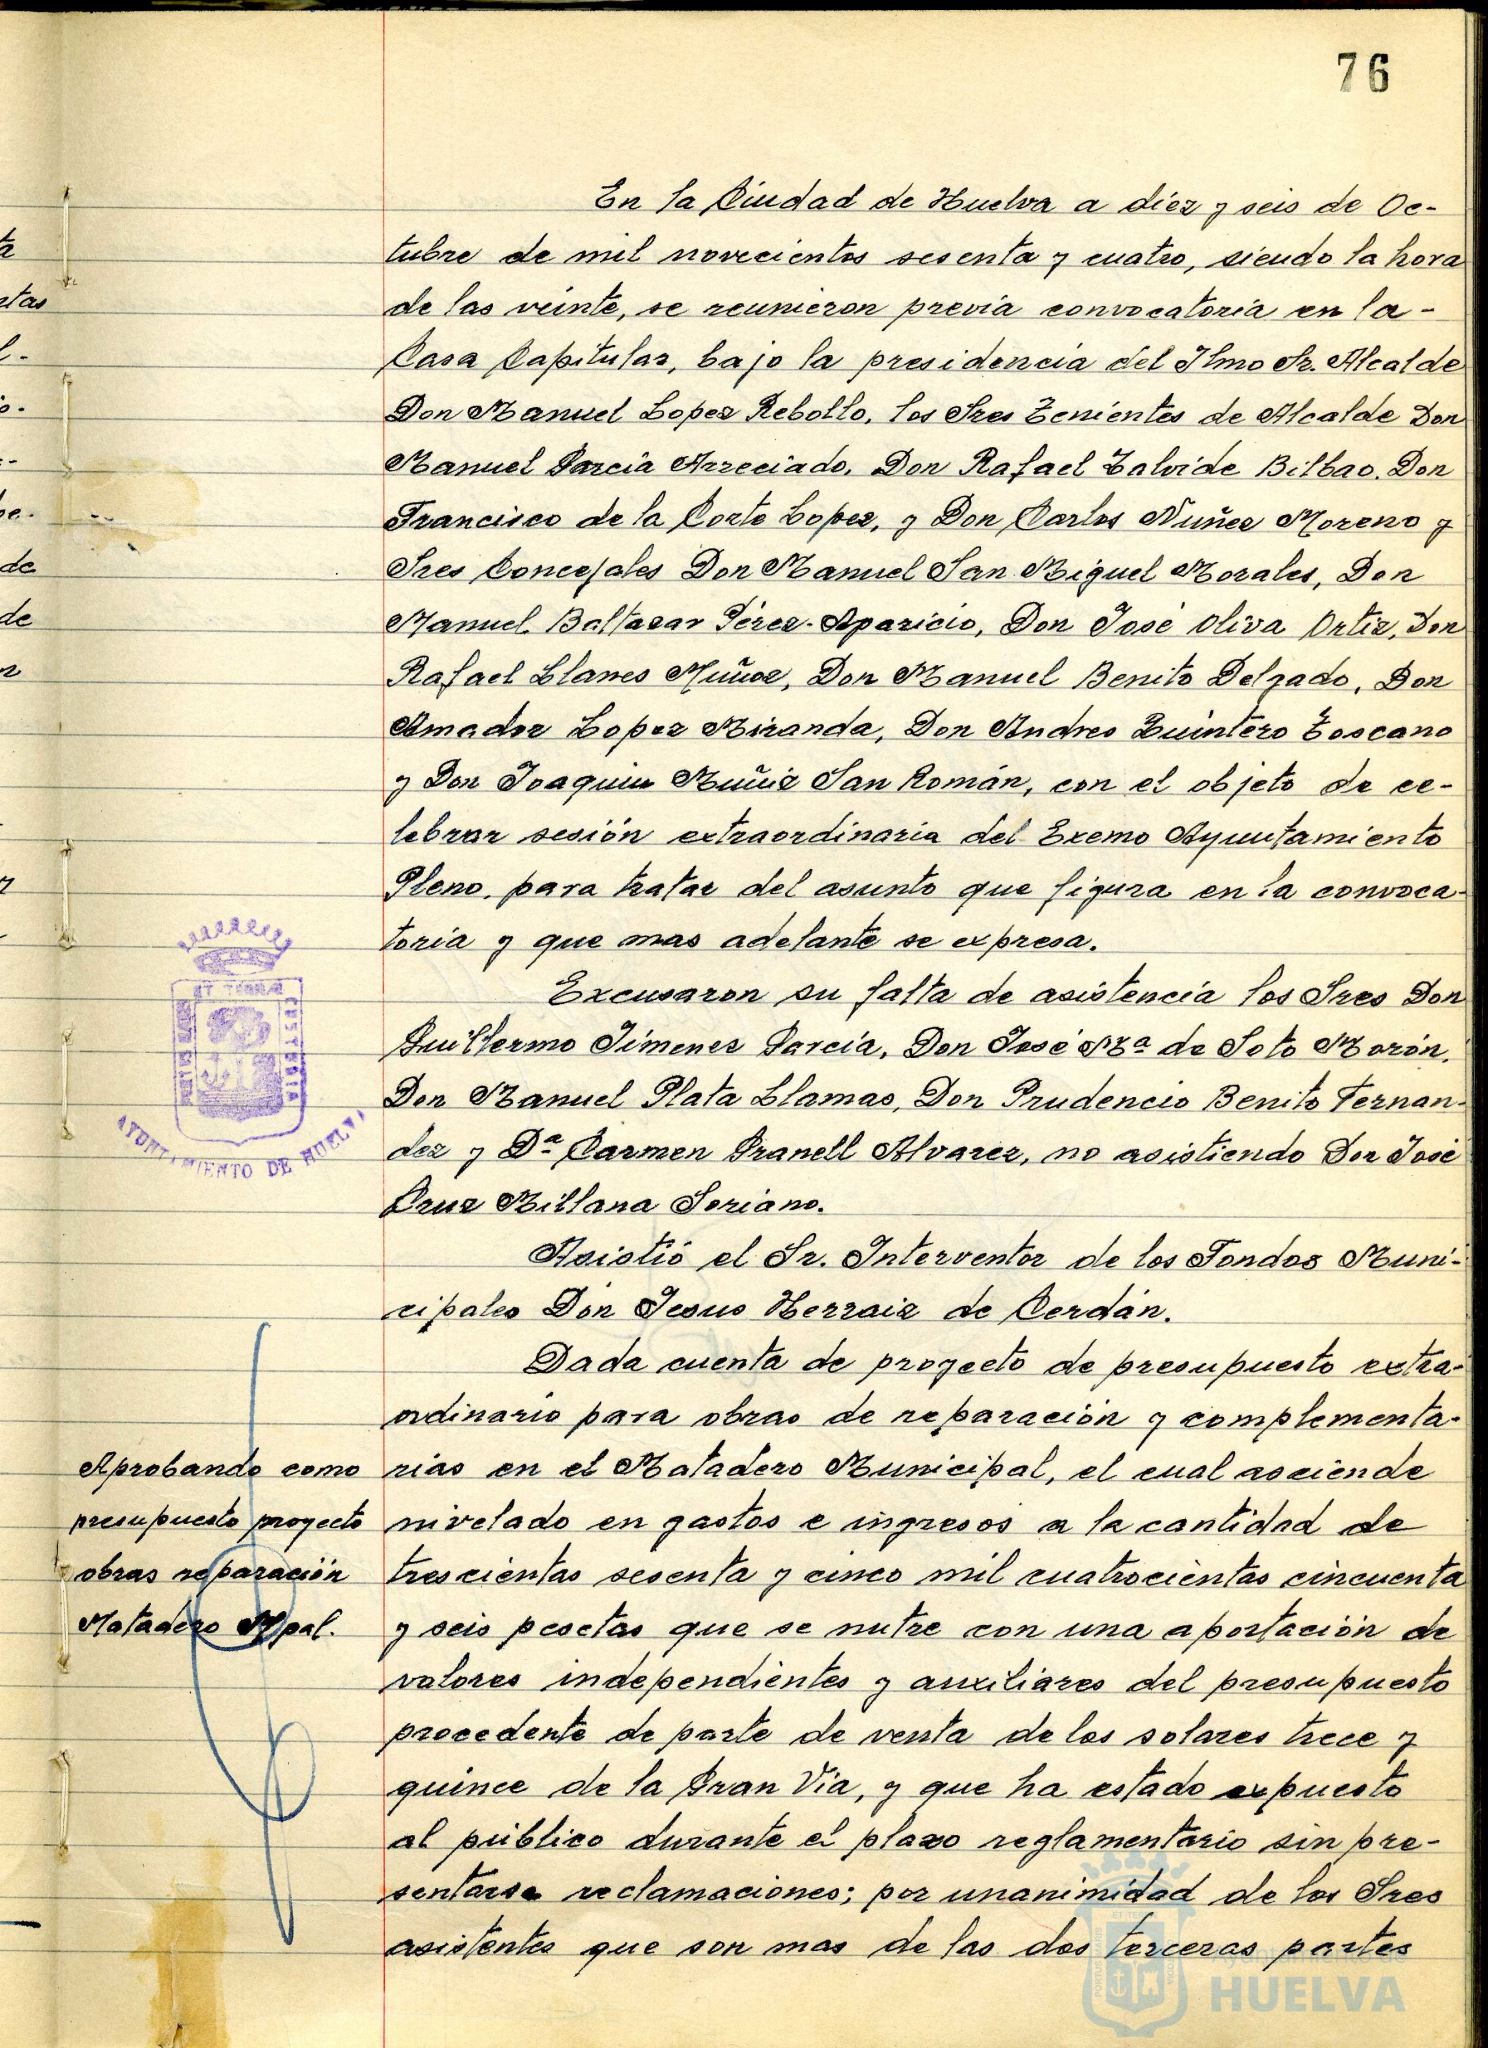 76
En la Ciudad de Huelva a diez y seis de Oc-
tubre de mil novecientos sesenta y cuatro, siendo la hora
de las veinte, se reunieron previa convocatoria en la-
Casa Capitular, bajo la presidencia del Ilmo Sr. Alcalde
Don Manuel Lopez Rebollo, los Sres Tenientes de Alcalde Don
Manuel Garcia Arreciado, Don Rafael Talvide Bilbao. Don
Francisco de la Corte Lopez, y Don Carlos Nuñez Moreno y
Sres Concejales Don Manuel San Miguel Morales, Don
Manuel Baltasar Pérez-Aparicio, Don José Oliva Ortiz, Don
Rafael Llanes Muñoz, Don Manuel Benito Delgado, Don
Amador Lopez Miranda, Don Andres Quintero Toscano
y Don Joaquin Muñiz San Román, con el objeto de ce-
lebrar sesión extraordinaria del Excmo Ayuntamiento
Pleno, para tratar del asunto que figura en la convoca-
toria y que mas adelante se expresa.
Excusaron su falta de asistencia los Sres Don
Guillermo Jimenez Garcia, Don José Mª de Soto Morón,
Don Manuel Plata Llamas, Don Prudencio Benito Fernan-
dez y Dª Carmen Granell Alvarez, no asistiendo Don José
Cruz Millana Soriano.
Asistió el Sr. Interventor de los Fondos Muni-
cipales Don Jesus Herraiz de Cerdán.
Dada cuenta de proyecto de presupuesto extra-
ordinario para obras de reparación y complementa-
rias en el Matadero Municipal, el cual asciende
nivelado en gastos e ingresos a la cantidad de
trescientas sesenta y cinco mil cuatrocientas cincuenta
y seis pesetas que se nutre con una aportación de
valores independientes y auxiliares del presupuesto
procedente de parte de venta de los solares trece y
quince de la Gran Via, y que ha estado expuesto
al público durante el plazo reglamentario sin pre-
sentarse reclamaciones; por unanimidad de los Sres
asistentes que son mas de las dos terceras partes
Aprobando como
presupuesto proyecto
obras reparación
Matadero Mpal.
ET TERRÆ
CUSTODIA
AYUNTAMIENTO DE HUELVA
Ayuntamiento de
HUELVA